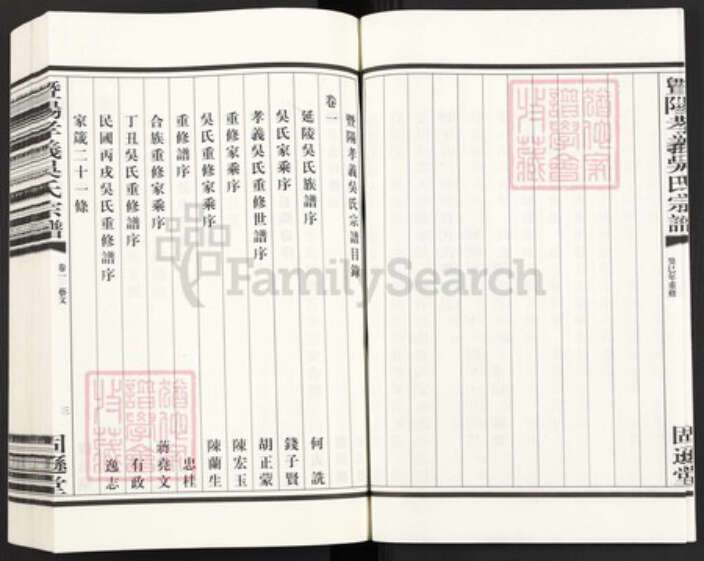 暨陽孝義吳氏宗譜
癸巳年重修
固遜堂
暨陽孝義吳氏宗譜目錄
卷一
延陵吳氏族譜序 何詵
吳氏家乘序 錢子賢
孝義吳氏重修世譜序 胡正蒙
重修家乘序 陳宏玉
吳氏重修家乘序 陳蘭生
重修譜序 忠桂
合族重修家乘序 蔣堯文
丁丑吳氏重修譜序 有政
民國丙戌吳氏重修譜序 逸志
家箴二十一條
暨陽孝義吳氏宗譜
卷一 藝文
三
固遜堂
FamilySearch